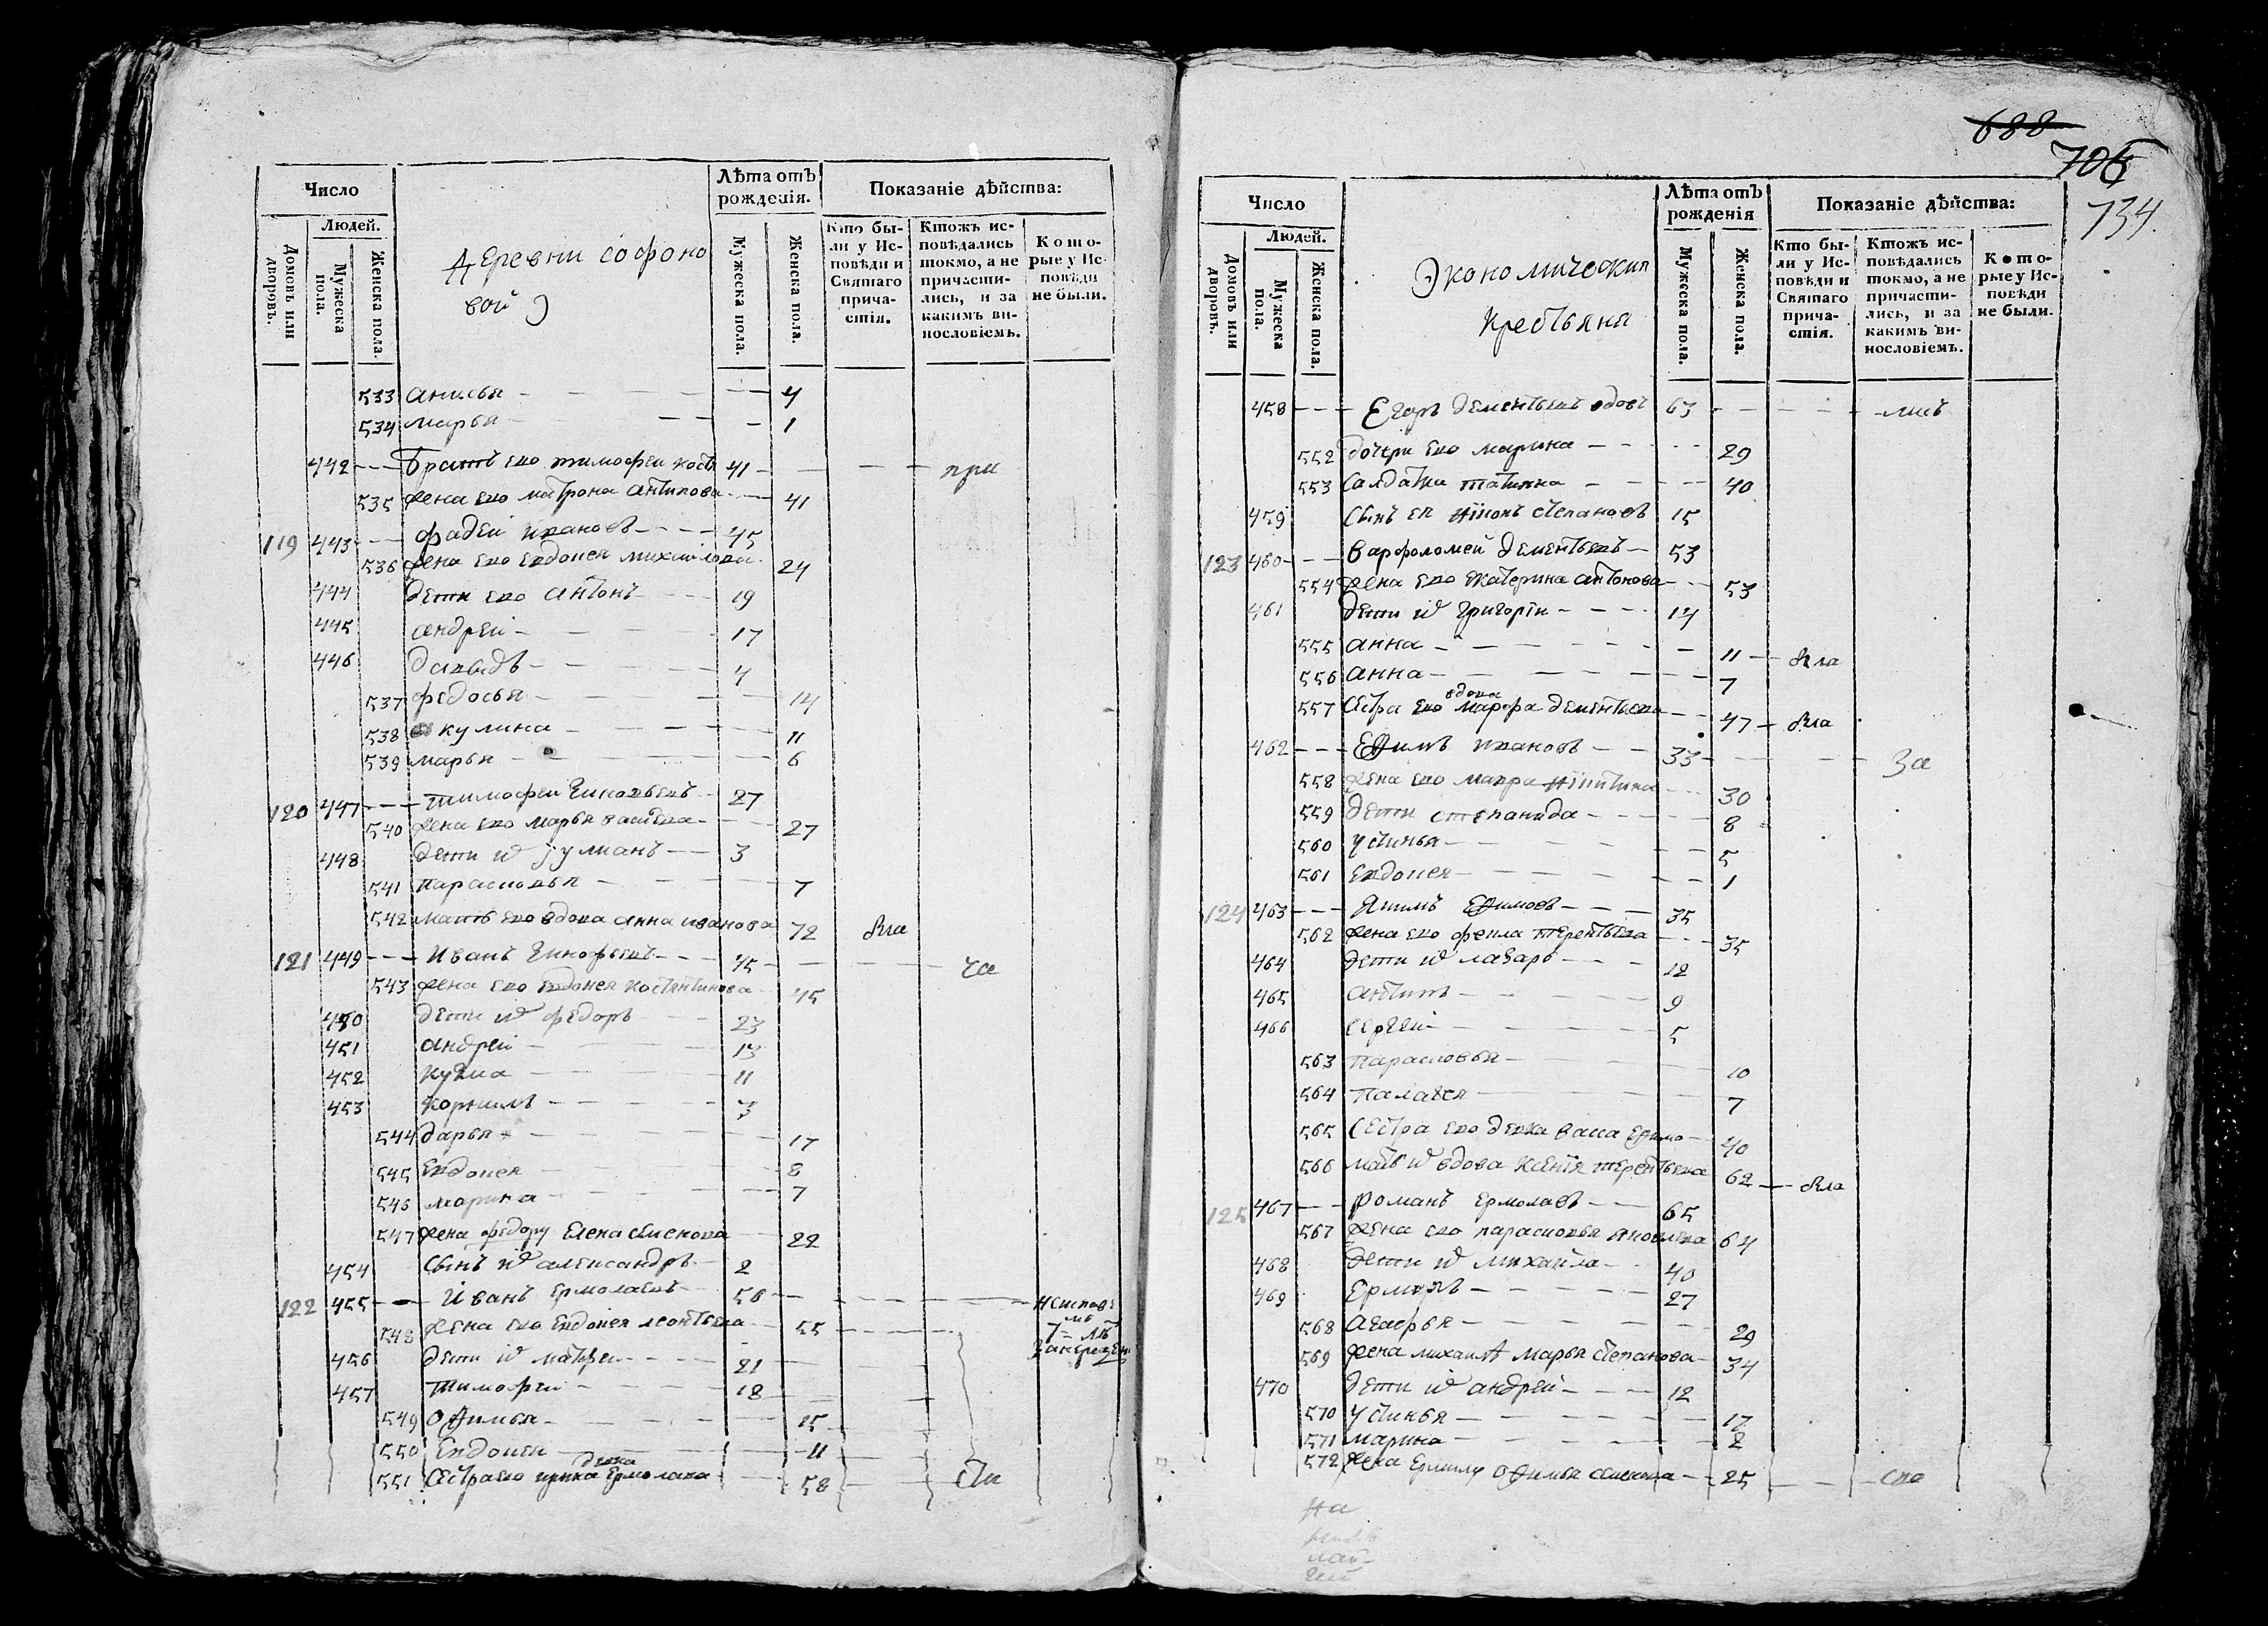 Число
Людей.
Домовъ или дворовъ.
Мужеска пола.
Женска пола.
Деревни софоно
вой
Лѣта отъ рожденія.
Мужеска пола.
Женска пола.
Показаніе дѣйства:
Кто были у Исповѣди и Святаго причастія.
Ктожъ исповѣдались токмо, а не причастились, и за какимъ винословіемъ.
Которые у Исповѣди не были.
533 анисья 4
534 марья 1
442 братъ ево тимофеи 41 при
535 жена ево матрона антипова 41
119 443 фадеи ивановъ 45
536 жена ево евдокея михаилова 24
444 дети ево антонъ 19
445 андреи 17
446 давыдъ 4
537 федосья 14
538 акулина 11
539 марья 6
120 447 тимофеи зиновьевъ 27
540 жена ево марья 27
448 дети их улианъ 3
541 парасковья 7
542 мать ево вдова анна иванова 72
121 449 иванъ 45 ча
543 жена ево евдокея костянтинова 45
450 дети их федоръ 23
451 андреи 13
452 кузма 11
453 корнилъ 3
544 дарья 17
545 евдокея 8
546 марина 7
547 жена федору елена семенова 22
454 сынъ их александръ 2
122 455 иванъ ермолаевъ 56
548 жена ево евдокея леонтьева 55
456 дети их матфеи 21
457 тимофеи 18
549 офимья 15
550 евдокея 11
девка
551 сестра ево ермолаева 58 сти
688
706
734.
Число
Людей.
Домовъ или дворовъ.
Мужеска пола.
Женска пола.
Экономическия
крестьяня
Лѣта отъ рожденія
Мужеска пола.
Женска пола.
Показаніе дѣйства:
Кто были у Исповѣди и Святаго причастія.
Ктожъ исповѣдались токмо, а не причастились, и за какимъ винословіемъ.
Которые у Исповѣди не были.
458 Егоръ дементьевъ вдовъ 63 лись
552 дочери ево марина 29
553 салдатка татияна 40
459 сынъ ея никонъ степановъ 15
123 460 варфоломей дементьевъ 53
554 жена ево екатерина антонова 53
461 дети их григорїи 14
555 анна 11
556 анна 7
вдова
557 сестра ево марфа дементьева 47
462 ефимъ ивановъ 33 за
558 жена ево мавра никитина 30
559 дети степанида 8
560 устинья 5
561 евдокея 1
124 463 якимъ ефимовъ 35
562 жена ево фекла терентьева 35
464 дети их лазарь 12
465 антипъ 9
466 сергеи 5
563 парасковья 10
564 палагея 7
565 сестра ево девка васа ефимо 40
566 мать их вдова ксенїя терентьева 62
125 467 романъ ермолаевъ 65
567 жена ево парасковья яковлева 64
468 дети их михаила 40
469 ермилъ 27
568 агафья 29
569 жена михаила марья степанова 34
470 дети их андреи 12
570 устинья 17
571 марина 2
572 жена ермилу офимья семенова 25 спо
на